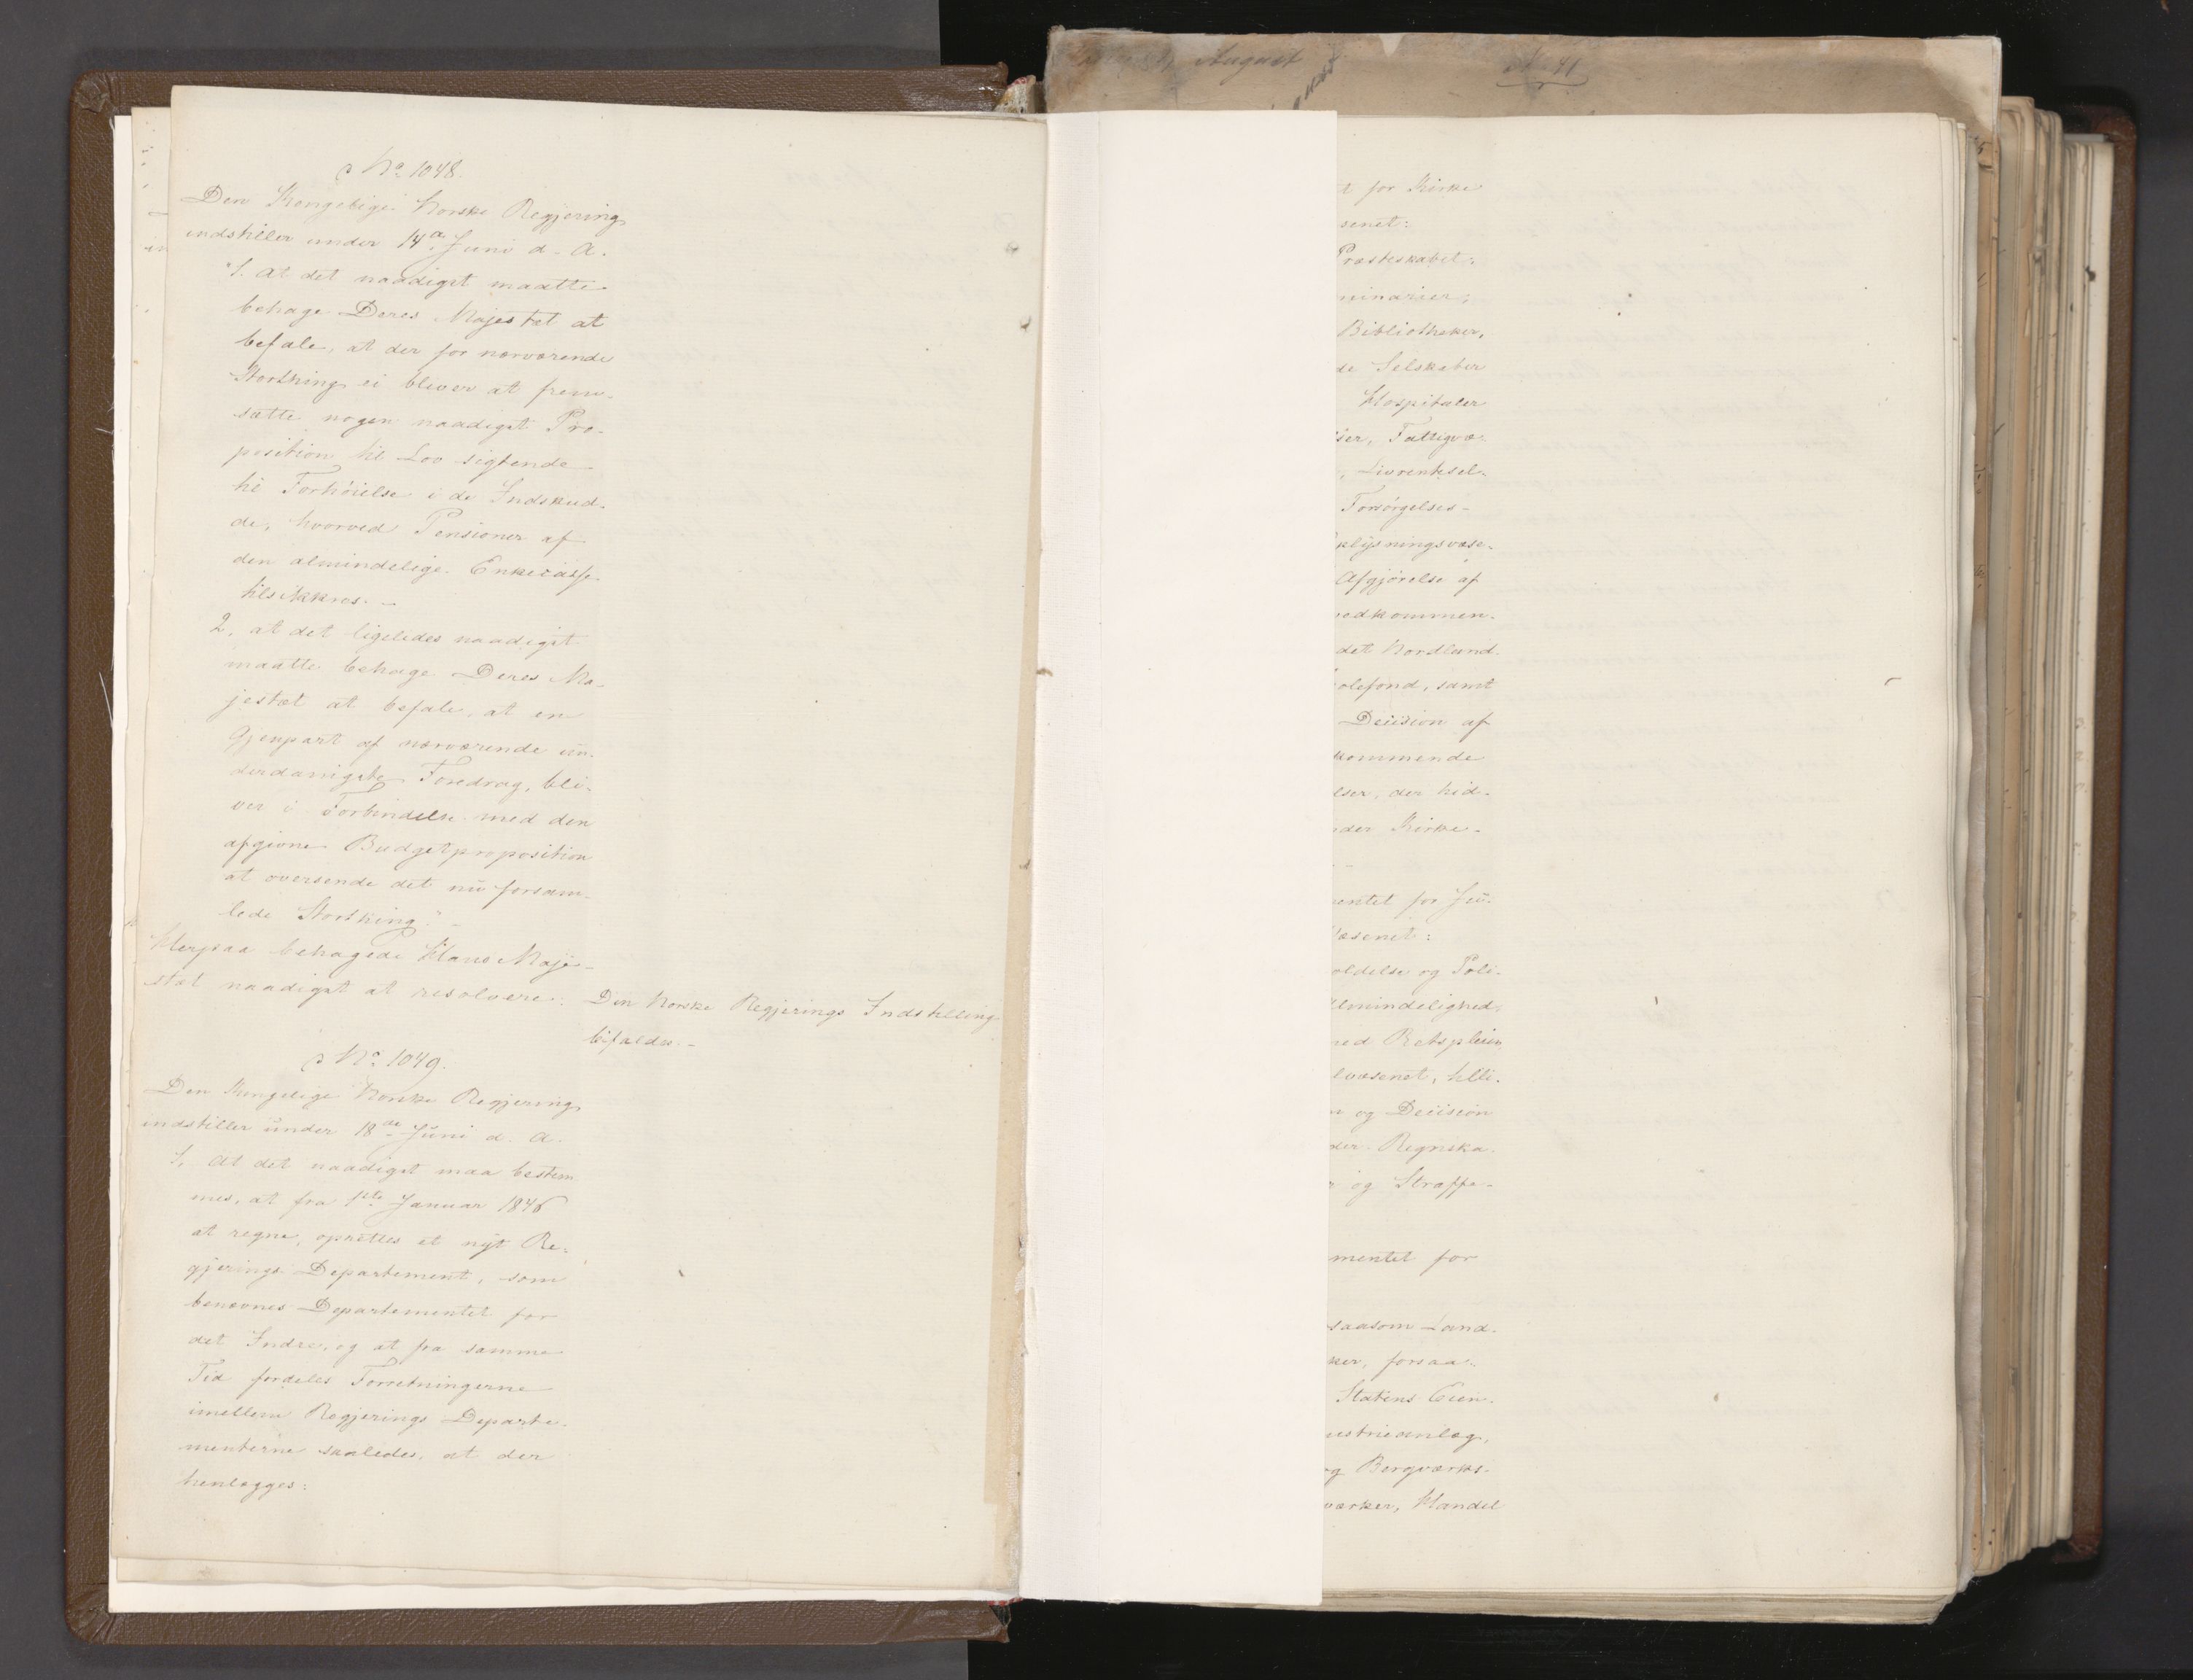 No 1048.
Den Kongelige Norske Regjering
indstiller under 14de Juni d. A.
"1. At det naadigst maatte
behage Deres Majestæt at
befale, at der for nærværende
Storthing ei bliver at frem-
sætte nogen naadigst Pro-
position til Lov sigtende
til Forhöielse i de Indskud-
de, hvorved Pensioner af
den almindelige Enkecasse
tilsikkres. -
2, at det ligeledes naadigst
maatte behage Deres Ma-
jestæt at befale, at en
Gjenpart af nærværende un-
derdanigste Foredrag, bli-
ver i Forbindelse med den
afgivne Budgetproposition
at oversende det nu forsam-
lede Storthing." -
Herpaa behagede Hans Maje-
stæt naadigst at resolvere:
Den Norske Regjerings Indstilling
bifaldes. -
No 1049.
Den Kongelige Norske Regjering
indstiller under 18de Juni d. A.
"1, At det naadigst maa bestem
mes, at fra 1ste Januar 1846
at regne, oprettes et nyt Re-
gjerings Departement, som
benævnes Departementet for
det Indre, og at fra samme
Tid fordeles Forretningerne
imellem Regjerings Departe-
menterne saaledes, at der
henlægges:
August
No 41
t for Kirke
senet:
Præsteskabet;
minarier;
Bibliotheker,
de Selskaber
Hospitaler
ser, Fattigvæ-
, Livrentesel-
Forsörgelses-
plysningsvæse-
Afgjörelse af
vedkommen-
det Nordland-
olefond, samt
Decision af
kommende
elser, der hid-
nder Kirke-
entet for Ju-
væsenet:
oldelse og Poli-
lmindelighed,
med Retspleien
lvæsenet, tilli-
n og Decision
der Regnska-
r og Straffe-
mentet for
saasom Land-
ker, forsaa-
Statens Eien-
ustrieanlæg,
og Bergværks-
værker, Handel